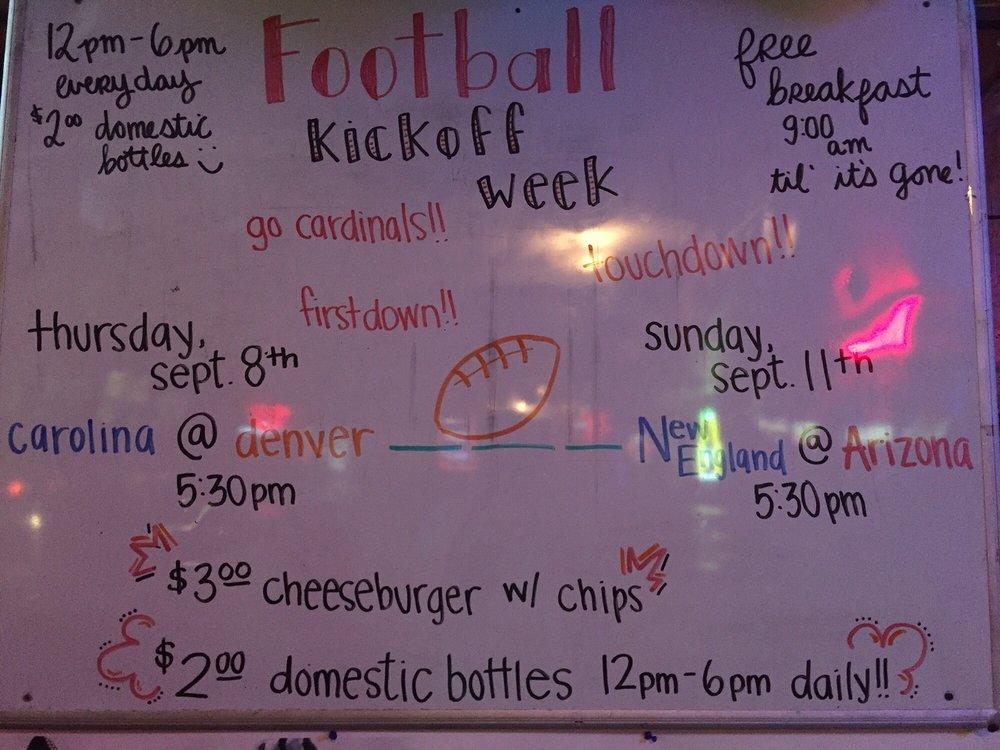 12pm-6pm
everyday
$2.00 domestic
bottles
Football
kickoff
week
free
breakfast
9:00
am
til' it's gone!
go cardinals!!
touchdown!!
firstdown!!
thursday,
sept. 8th
carolina @ denver
5:30pm
sunday,
sept. 11th
New England @ Arizona
5:30pm
$3.00 cheeseburger w/ chips
$2.00 domestic bottles 12pm-6pm daily!!